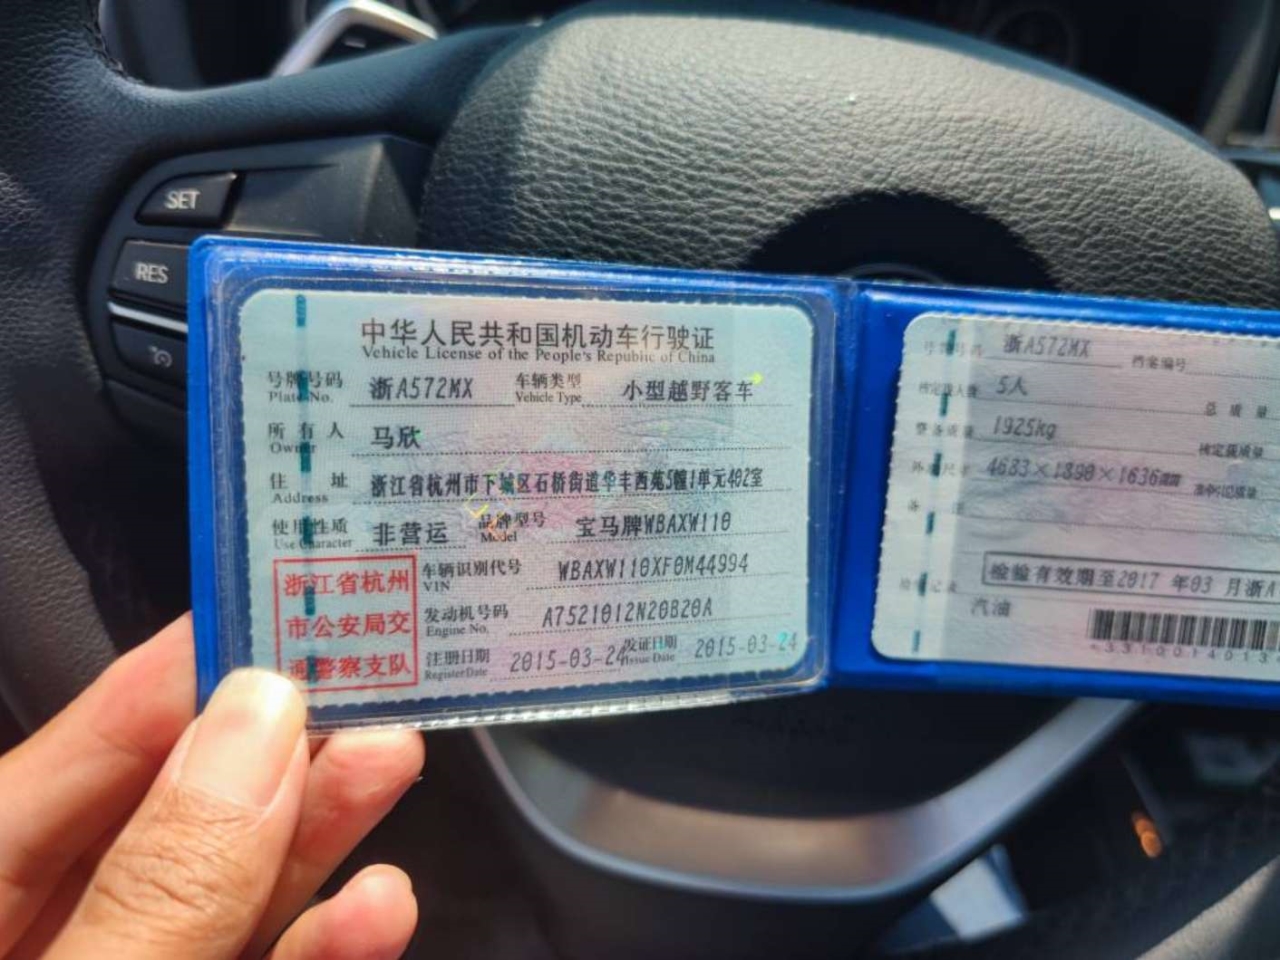 SET
RES
中华人民共和国机动车行驶证
Vehicle License of the People's Republic of China
号牌号码 浙A572MX 车辆类型 小型越野客车
Plate No. Vehicle Type
所有人 马欣
Owner
住址 浙江省杭州市下城区石桥街道华丰西苑5幢1单元402室
Address
使用性质 非营运 品牌型号 宝马牌WBAXW110
Use Character Model
浙江省杭州
市公安局交
通警察支队
车辆识别代号 WBAXW110XF0M44994
VIN
发动机号码 A7521012N20B20A
Engine No.
注册日期 2015-03-24 发证日期 2015-03-24
Register Date Issue Date
号牌号码 浙A572MX 档案编号
核定载人数 5人 总质量
整备质量 1925kg 核定载质量
外廓尺寸 4683×1890×1636mm 准牵引总质量
备注
检验记录 检验有效期至2017年03月浙A
汽油